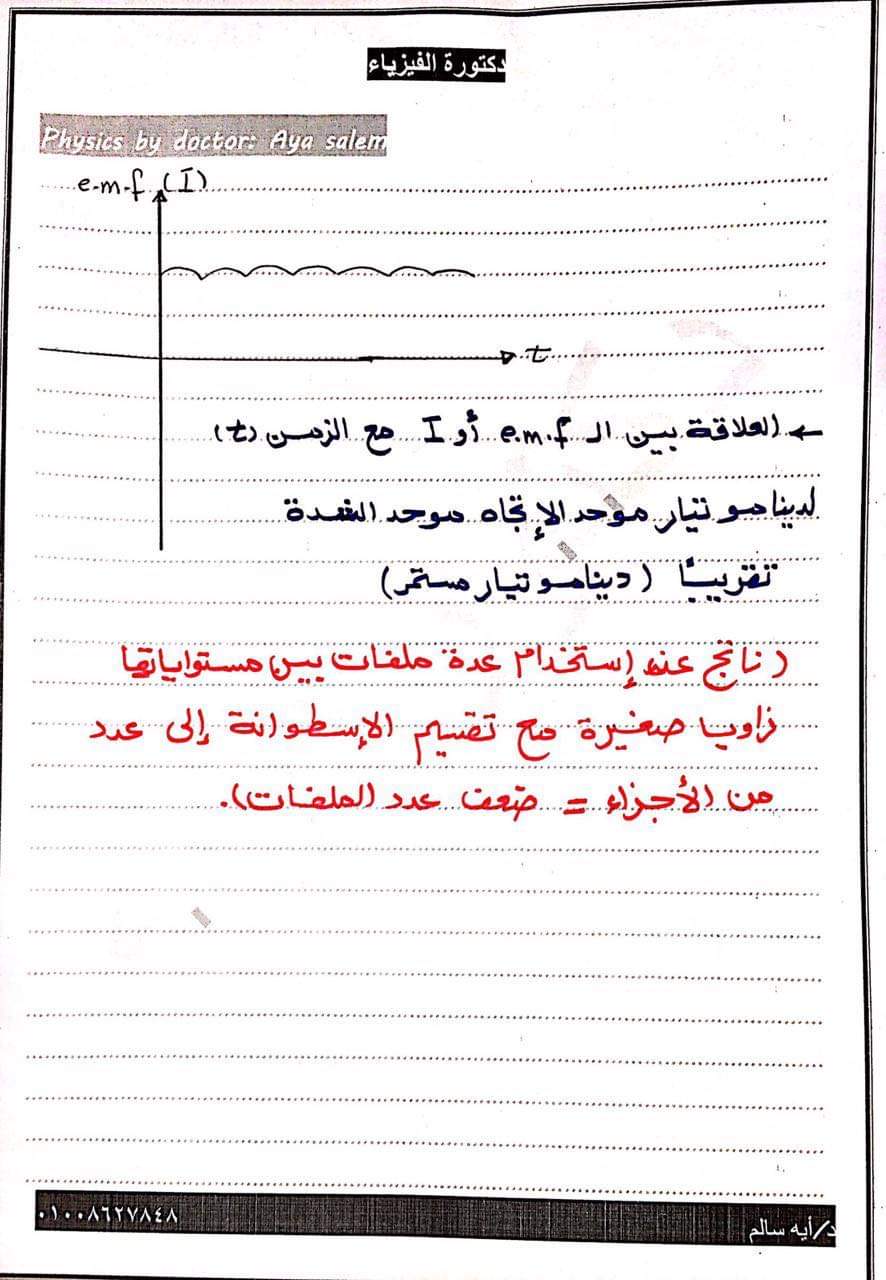 دكتورة الفيزياء
Physics by doctor: Aya salem
e.m.f (I)
t
← العلاقة بين الـ e.m.f أو I مع الزمن (t)
لدينامو تيار موحد الإتجاه موحد الشدة
تقريبًا (دينامو تيار مستمر)
(ناتج عند إستخدام عدة ملفات بين مستواياتها
زاويا صغيرة مع تقسيم الإسطوانة إلى عدد
من الأجزاء = ضعف عدد الملفات).
د/أيه سالم
٠١٠٠٨٦٢٧٨٤٨